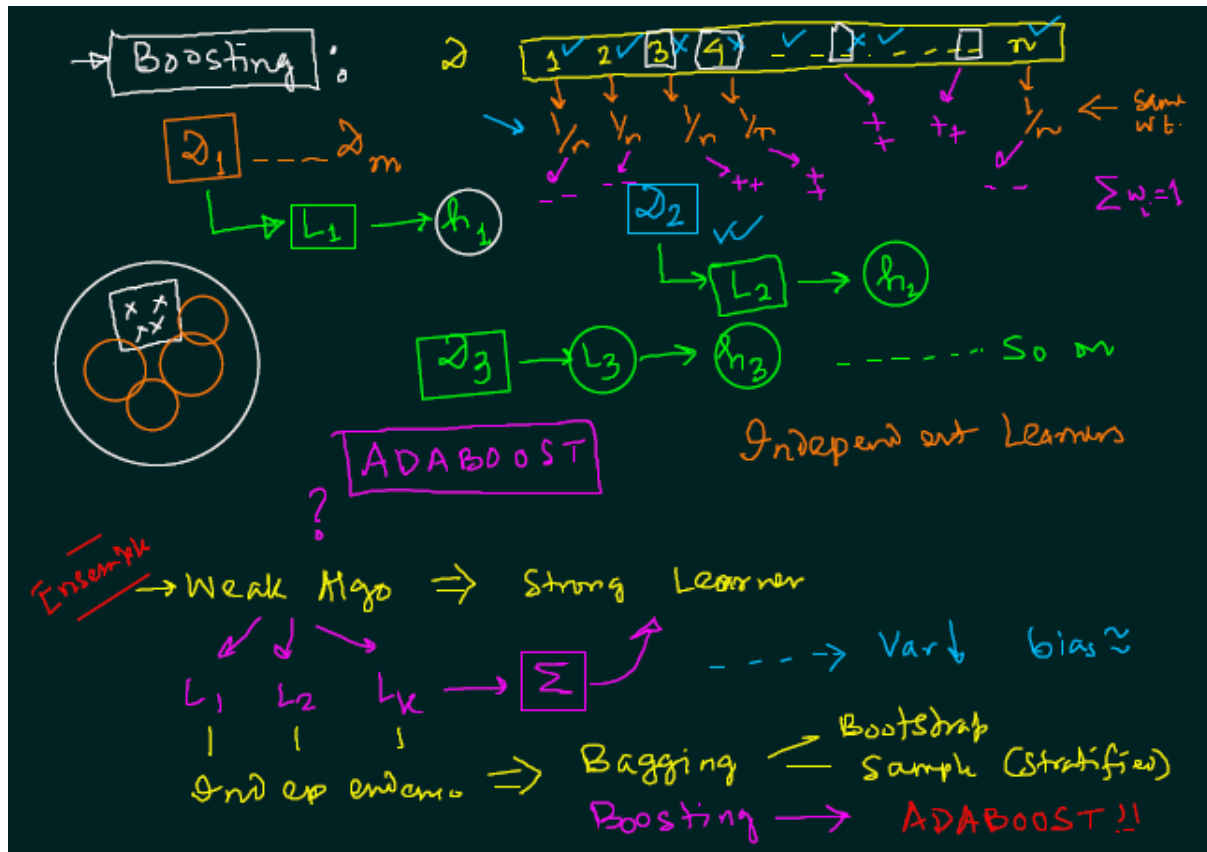 → Boosting : D 1✓ 2✓ 3✗ 4✗ _ _✓ _ ✗✓ _ _ _ _ n✓
1/n 1/n 1/n 1/n 1/n ← Same wt.
++ ++
-- -- ++ ++ -- Σ wᵢ = 1
D₁ ---- Dm
L₁ → h₁
D₂ ✓✓
L₂ → h₂
D₃ → L₃ → h₃ ------- So on
Independent Learners
ADABOOST
?
Ensemble
→ Weak Algo ⇒ Strong Learner
L₁ L₂ Lk → Σ
---→ Var↓ bias≈
⇒ Bagging
Bootstrap
Sample (stratified)
Boosting → ADABOOST!!